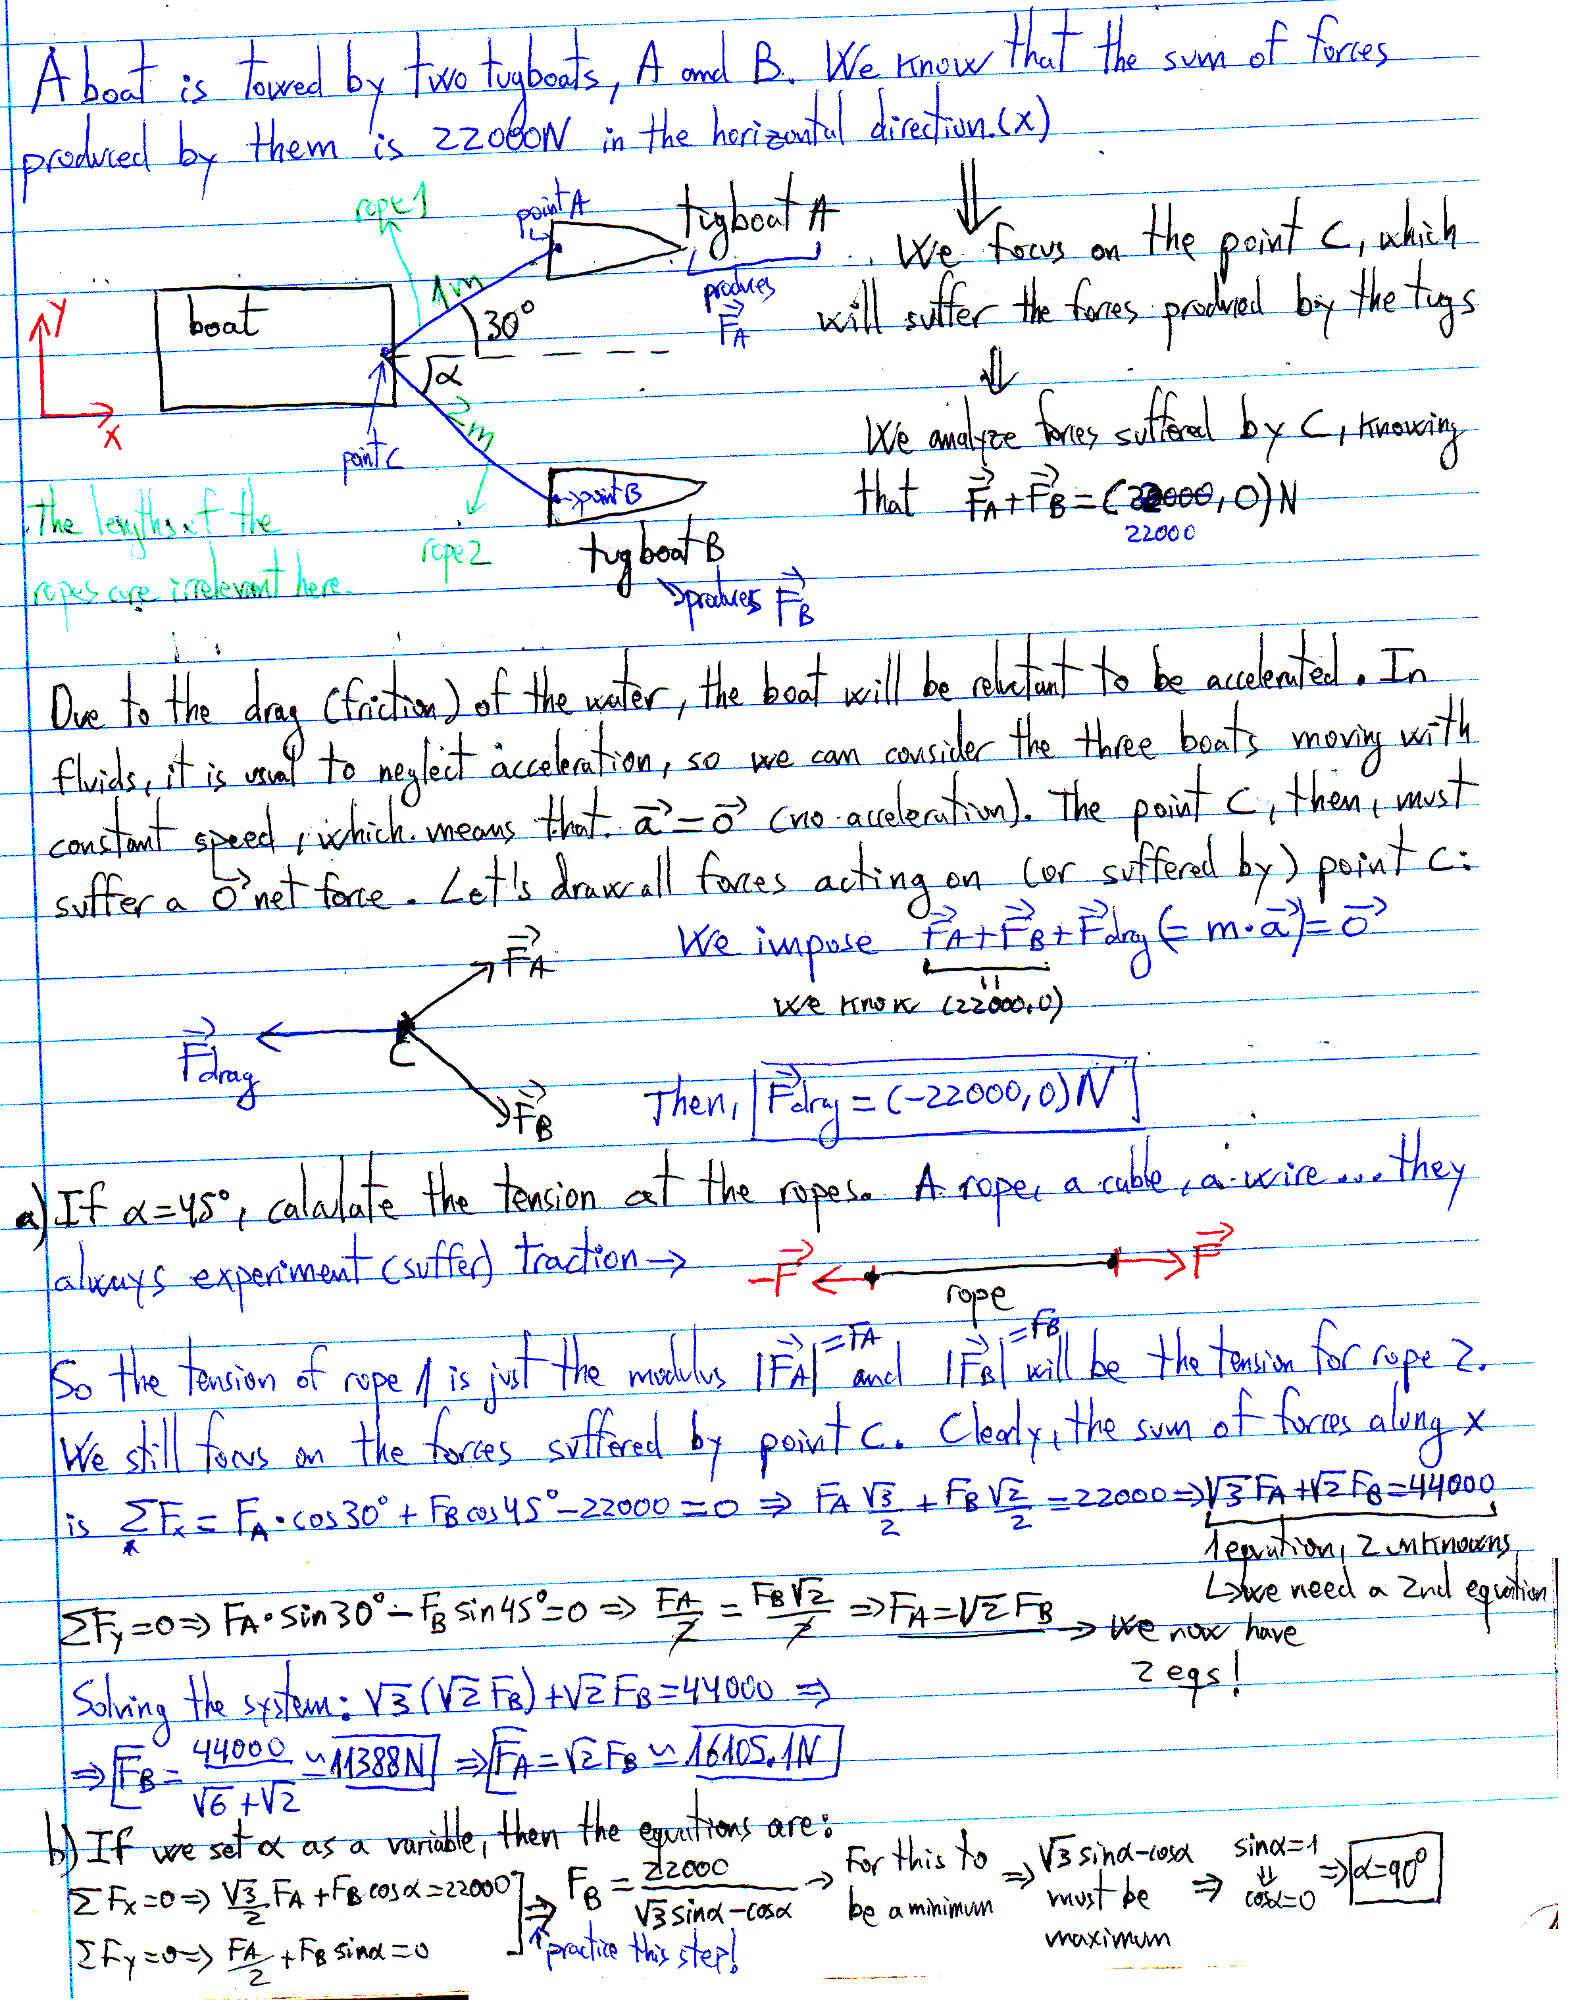 A boat is towed by two tugboats, A and B. We know that the sum of forces
produced by them is 22000N in the horizontal direction.(x)
rope 1
point A
tugboat A
produces
F⃗A
⇓
We focus on the point C, which
will suffer the forces produced by the tugs
⇓
We analyze forces suffered by C, knowing
that F⃗A+F⃗B=(22000,0)N
22000
y
x
boat
1m
30°
α
2m
point C
point B
rope 2
tugboat B
↳produces F⃗B
The lengths of the
ropes are irrelevant here.
Due to the drag (friction) of the water, the boat will be reluctant to be accelerated. In
fluids, it is usual to neglect acceleration, so we can consider the three boats moving with
constant speed, which means that a⃗=0⃗ (no acceleration). The point C, then, must
suffer a 0⃗ net force. Let's draw all forces acting on (or suffered by) point C:
We impose F⃗A+F⃗B+F⃗drag(=m·a⃗)=0⃗
we know (22000,0)
F⃗A
F⃗drag
C
F⃗B
Then, F⃗drag=(-22000,0)N
a) If α=45°, calculate the tension at the ropes. A rope, a cable, a wire... they
always experiment (suffer) traction →
-F⃗
rope
F⃗
So the tension of rope 1 is just the modulus |F⃗A|=FA and |F⃗B|=FB will be the tension for rope 2.
We still focus on the forces suffered by point C. Clearly, the sum of forces along x
is ΣFx = FA·cos30°+FBcos45°-22000=0 ⇒ FA √3/2 + FB √2/2 =22000⇒√3FA+√2FB=44000
1 equation, 2 unknowns
↳we need a 2nd equation
ΣFy=0⇒ FA·sin30°-FB sin45°=0 ⇒ FA/2 = FB√2/2 ⇒FA=√2FB → we now have
2 eqs!
Solving the system: √3(√2FB)+√2FB=44000 ⇒
⇒ FB = 44000/(√6+√2) ≃ 11388N ⇒ FA=√2FB ≃ 16105.1N
b) If we set α as a variable, then the equations are:
ΣFx=0⇒ √3/2 FA+FBcosα=22000
ΣFy=0⇒ FA/2 +FB sinα=0
⇒ FB = 22000/(√3sinα-cosα)
↑practice this step!
→ For this to
be a minimum
⇒ √3sinα-cosα
must be
maximum
⇒ sinα=1
⇓
cosα=0
⇒ α=90°